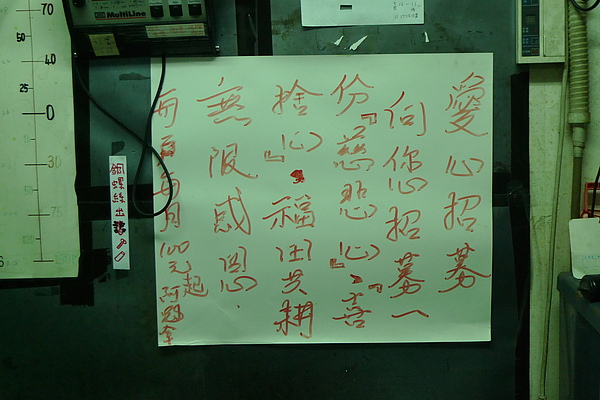 愛心招募
向您招募一
份『慈悲心』善
捨『心』
福田共耕
無限感恩.
每員每月100元起
鋼螺絲出
MultiLine
70
40
25
0
30
75